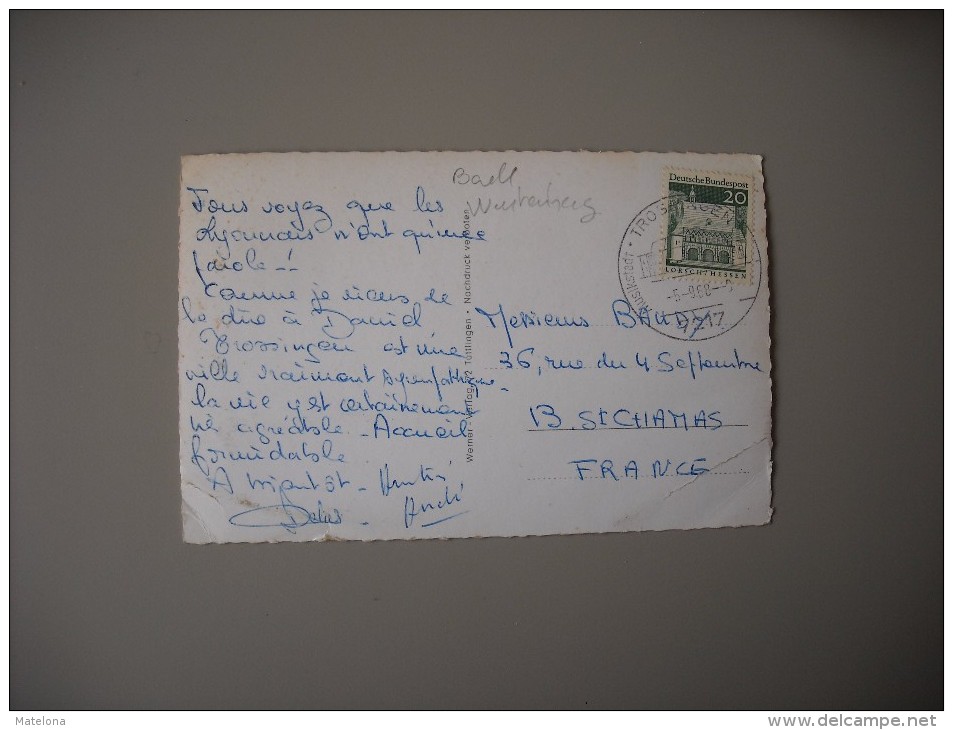 Baell
Wurtenberg
Vous voyez que les
Lyonnais n'ont qu'une
parole !!
Comme je viens de
le dire à Daniel
Trossingen est une
ville vraiment sympathique.
la vie y est certainement
très agréable. Accueil
formidable.
A bientôt.
André
Werner-Verlag, 72 Tuttlingen • Nachdruck verboten
Deutsche Bundespost
20
LORSCH/HESSEN
TROSSINGEN
Musikstadt
-5.-9.68-
7217
Messieurs BAUDY
36, rue du 4 Septembre
13. St CHAMAS
FRANCE
Matelona
www.delcampe.net